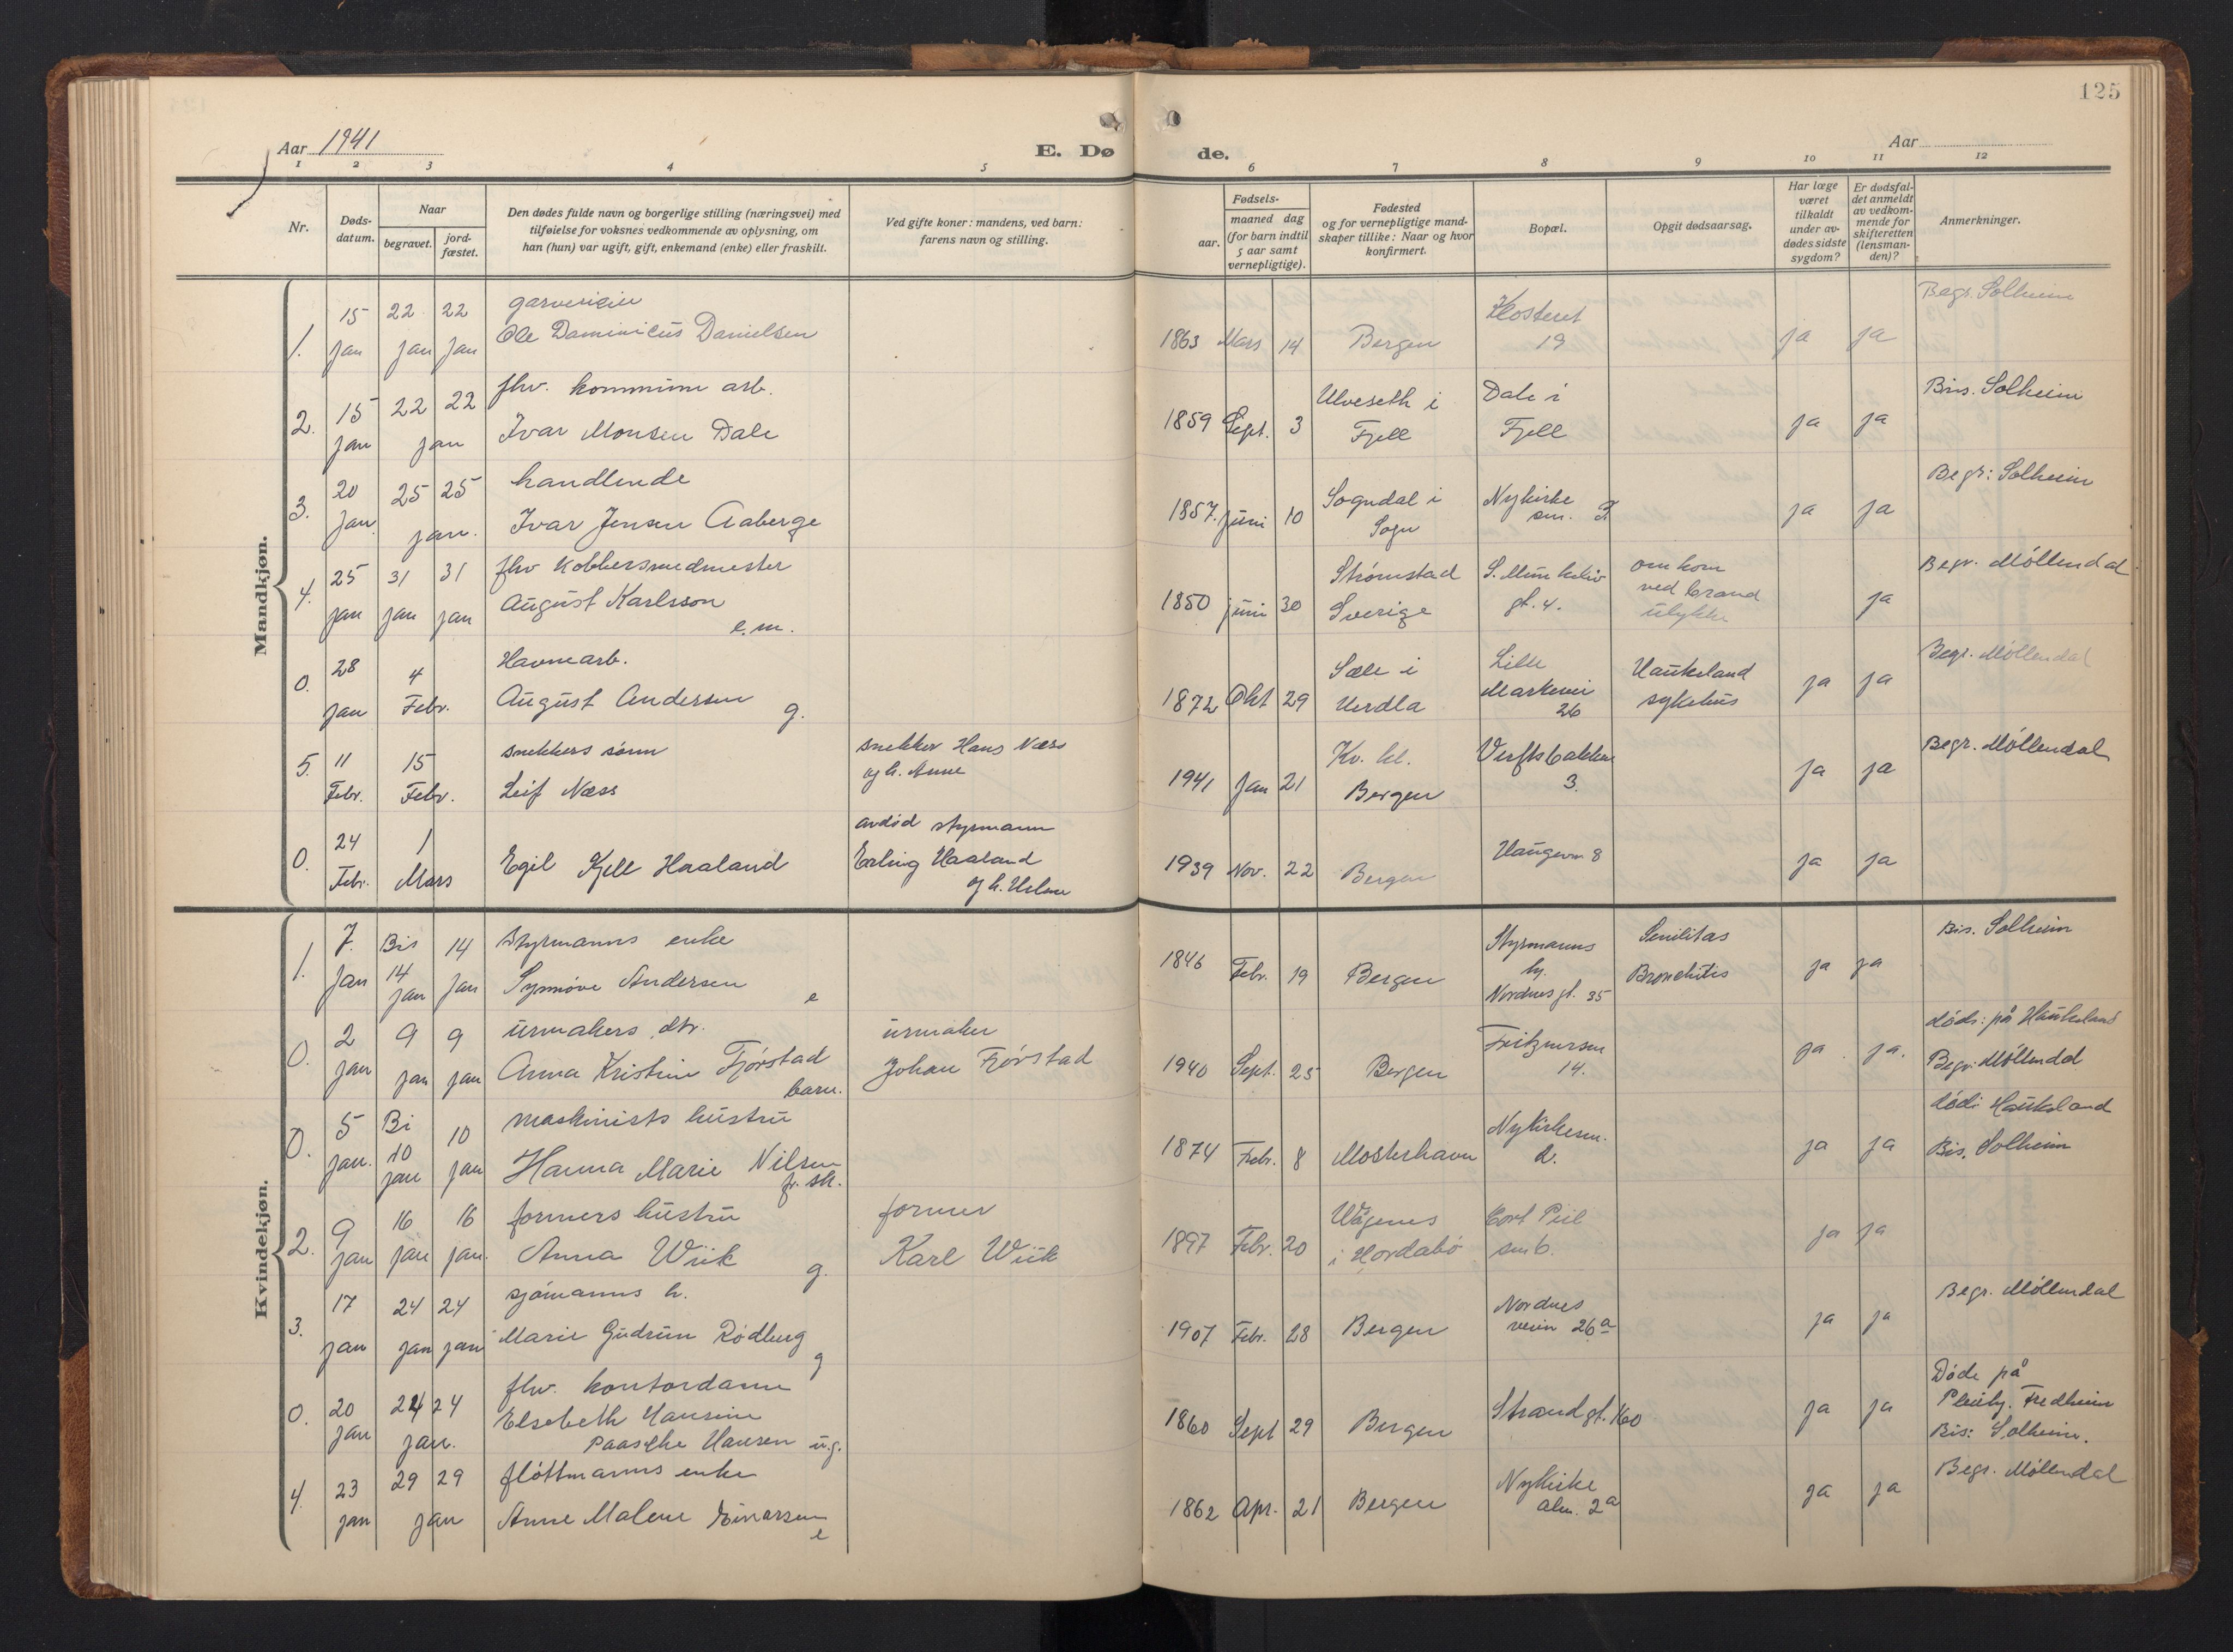 125
Aar 1941
E. Dø
de.
Aar
1 2 3 4 5 6 7 8 9 10 11 12
Nr.
Døds-
datum.
Naar
begravet.
jord-
fæstet.
Den dødes fulde navn og borgerlige stilling (næringsvei) med
tilføielse for voksnes vedkommende av oplysning, om
han (hun) var ugift, gift, enkemand (enke) eller fraskilt.
Ved gifte koner: mandens, ved barn:
farens navn og stilling.
Fødsels-
aar.
maaned dag
(for barn indtil
5 aar samt
vernepligtige).
Fødested
og for vernepligtige mand-
skaper tillike: Naar og hvor
konfirmert.
Bopæl.
Opgit dødsaarsag.
Har læge
været
tilkaldt
under av-
dødes sidste
sygdom?
Er dødsfal-
det anmeldt
av vedkom-
mende for
skifteretten
(lensman-
den)?
Anmerkninger.
Mandkjøn.
1. 15 jan 22 jan 22 jan
garverieier
Ole Dominicus Danielsen
1863 Mars 14 Bergen
Klosteret
19
ja ja
Begr. Solheim
2. 15 jan 22 22 jan
fhv. kommune arb.
Ivar Monsen Dale
1859 Sept. 3
Ulveseth i
Fjell
Dale i
Fjell
ja ja
Bis. Solheim
3. 20 jan 25 25 jan.
handlende
Ivar Jensen Aaberge
1857. juni 10
Sogndal i
Sogn
Nykirke
sm. 3
ja ja
Begr: Solheim
4. 25 jan 31 jan 31 jan
fhv Kobbersmedmester
August Karlsson
e.m.
1850 juni 30
Strømstad
Sverige
gt. 4.
omkom
ved brand
ulykke
ja
Begr. Møllendal
0. 28 jan 4 Febr.
Havnearb.
August Andersen
g.
1872 Okt 29
Sæle i
Herdla
Lille
Markevei
26
Haukeland
sykehus
ja ja
Begr. Møllendal
5. 11 Febr. 15 Febr.
snekkers sønn
Leif Næss
snekker Hans Næss
og h. Anne
1941 Jan 21
Kv. kl.
Bergen
Verftsbakken
3.
ja ja
Begr. Møllendal
0. 24 Febr. 1 Mars
Egil Kjell Haaland
avdød styrmann
Erling Haaland
og h. Helene
1939 Nov. 22 Bergen
Haugevn 8
ja ja
Kvindekjøn.
1. 7. Jan Bis 14 jan 14 jan
Styrmanns enke
Synnøve Andersen
e
1846 Febr. 19 Bergen
Styrmanns
hj.
Nordnesgt. 35
Senilitas
Bronchitis
ja ja
Bis. Solheim
0. 2 jan 9 jan 9 jan
urmakers dtr.
Anna Kristine Fjørstad
barn.
urmaker
Johan Fjørstad
1940 Sept. 25 Bergen
Fritznersm
14.
ja ja.
døds: på Haukeland
Begr: Møllendal
0. 5 jan. Bi 10 jan 10 jan
maskinists hustru
Hanna Marie Nilsen
fr. sk.
1874 Febr. 8 Mosterhavn
Nykirkesm.
2.
ja ja
død: Haukeland
Bis. Solheim
2. 9 jan 16 jan 16 jan.
formers hustru
Anna Wiik
g.
former
Karl Wiik
1897 Febr. 20
Vågenes
i Hordabø
Cort Piil
sm 6.
ja ja
3. 17 jan 24 jan 24 jan
sjømanns h.
Marie Gudrun Rødberg
g
1907 Febr. 28 Bergen
Nordnes
veien 26a
ja ja
Begr. Møllendal
0. 20 jan 24 24 jan.
fhv. kontordame
Elsebeth Hansine
Paasche Hansen u.g.
1860 Sept 29 Bergen
Strandgt. 160
ja ja
Døde på
Pleiehj. Fredheim
Bis: Solheim.
4. 23 jan 29 29 jan
fløttmanns enke
Anne Malene Einarsen
e
1862 Apr. 21 Bergen
Nykirke
alm. 2a
ja ja
Begr. Møllendal